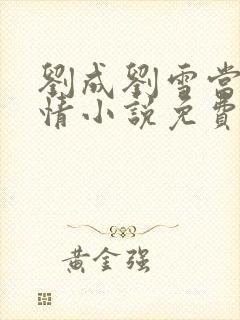 劉成劉雪當
情小說免費
黃金强